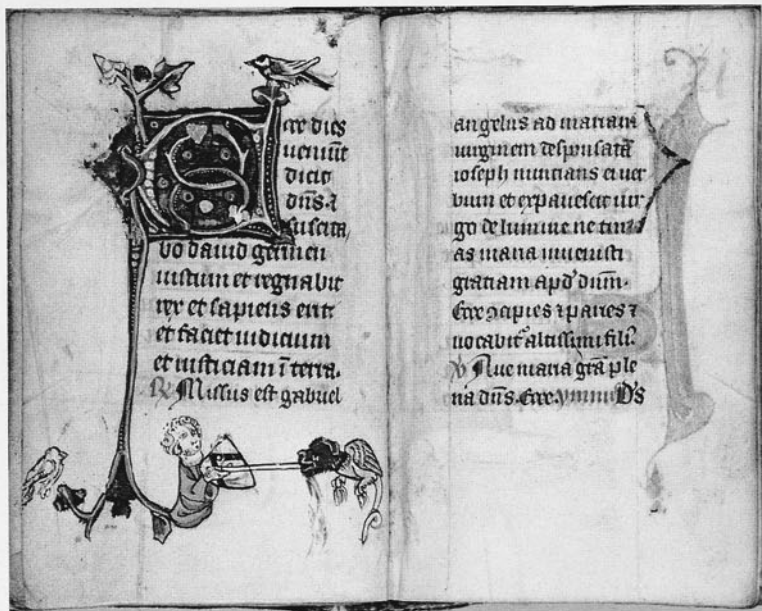 Ecce dies
ueniūt
dicit
dn̄s. ⁊
suscita
bo dauid germen
iustum et regnabit
rex et sapiens erit
et faciet iudicium
et iusticiam ī terra.
℟ Missus est gabriel
angelus ad mariam
uirginem desponsatā
ioseph nuncians ei uer
bum et expauescit uir
go de lumine ne time
as maria inuenisti
gratiam apd' dn̄m.
Ecce ꝯcipies ⁊ paries ⁊
uocabit᷑ altissimi fili᷒
℣ Aue maria grā ple
na dn̄s. Ecce.